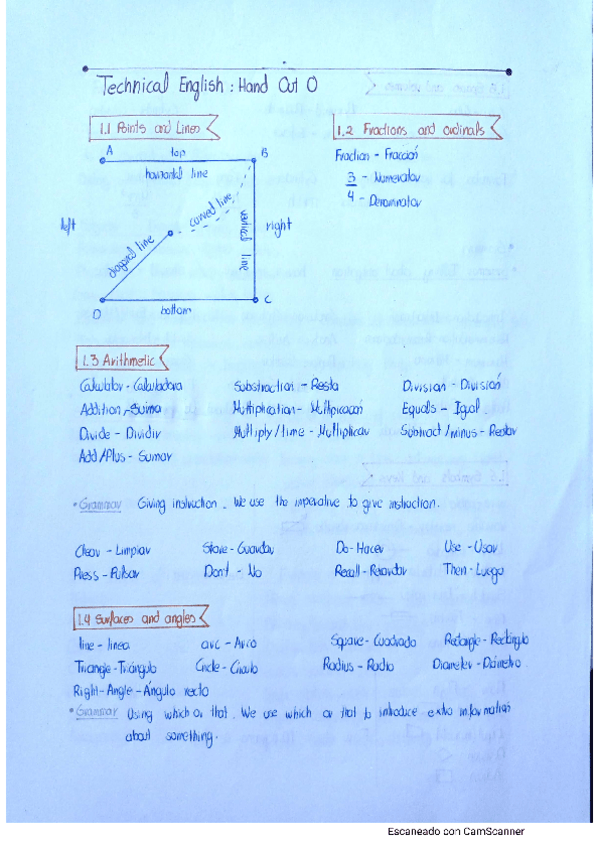 Technical English: Hand Out 0
1.1 Points and Lines
1.2 Fractions and ordinals
A
top
B
horizontal line
left
diagonal line
curved line
vertical line
right
D
bottom
C
Fraction - Fracción
3 - Numerator
4 - Denominator
1.3 Arithmetic
Calculator - Calculadora
Substraction - Resta
División - División
Addition - Suma
Multiplication - Multiplicación
Equals - Igual
Divide - Dividir
Multiply/time - Multiplicar
Subtract/minus - Restar
Add/Plus - Sumar
* Grammar Giving instruction. We use the imperative to give instruction.
Clear - Limpiar
Store - Guardar
Do - Hacer
Use - Usar
Press - Pulsar
Don't - No
Recall - Recordar
Then - Luego
1.4 Surfaces and angles
line - linea
arc - Arco
Square - Cuadrado
Rectangle - Rectángulo
Triangle - Triángulo
Circle - Círculo
Radius - Radio
Diameter - Diámetro
Right-Angle - Ángulo recto
* Grammar Using which or that. We use which or that to introduce extra information
about something.
Escaneado con CamScanner